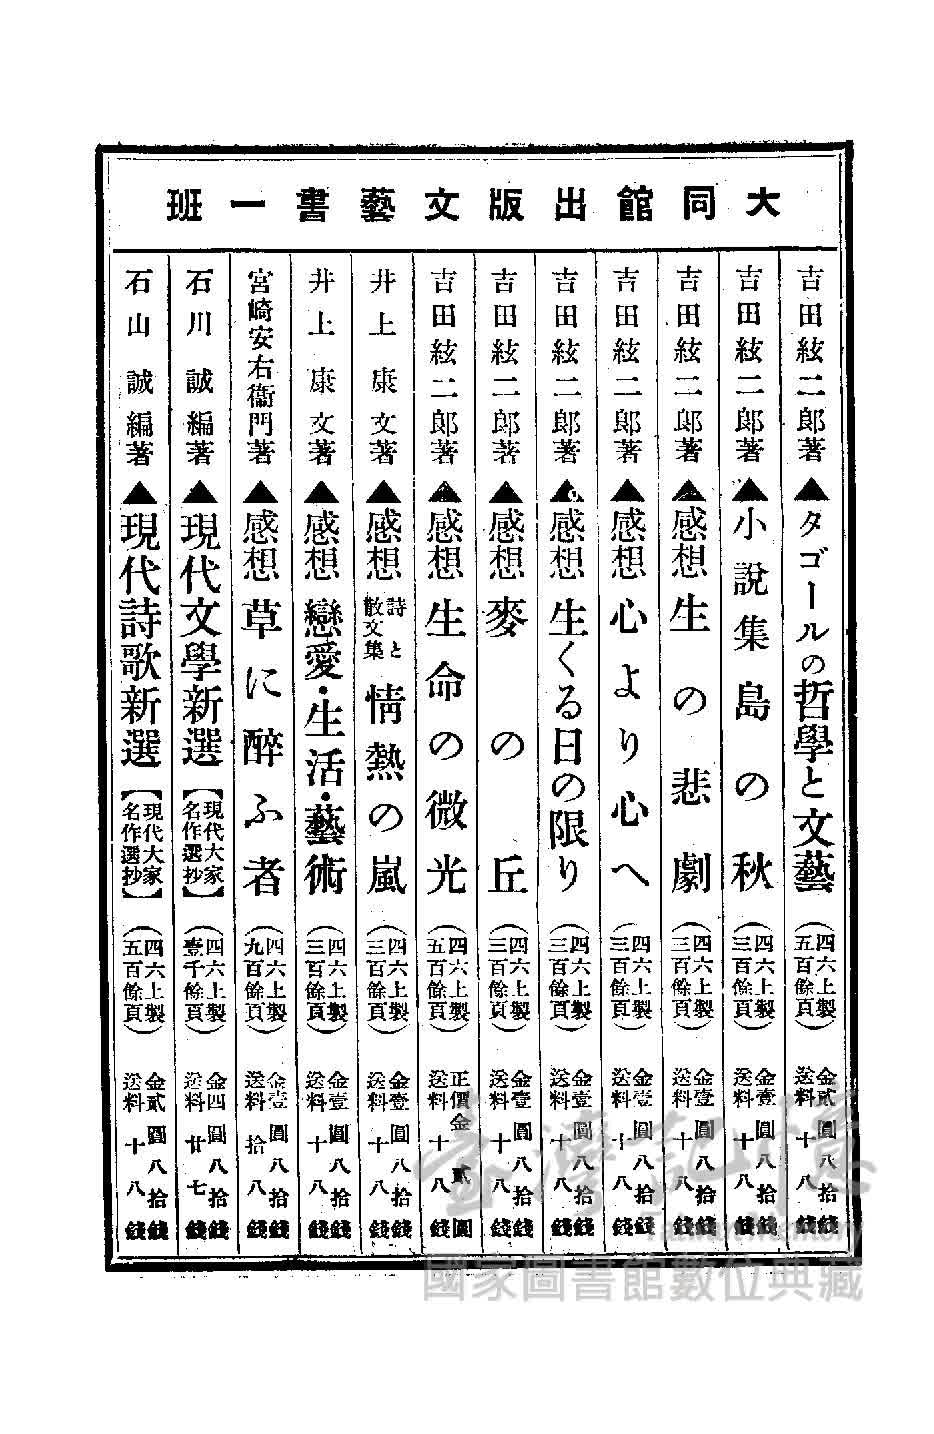 大同館出版文藝書一班
吉田絃二郎著 ▲タゴールの哲學と文藝 (四六上製五百餘頁) 金貳圓八拾錢 送料十八錢
吉田絃二郎著 ▲小說集 島の秋 (四六上製三百餘頁) 金壹圓八拾錢 送料十八錢
吉田絃二郎著 ▲感想 生の悲劇 (四六上製三百餘頁) 金壹圓八拾錢 送料十八錢
吉田絃二郎著 ▲感想 心より心へ (四六上製三百餘頁) 金壹圓八拾錢 送料十八錢
吉田絃二郎著 ▲感想 生くる日の限り (四六上製三百餘頁) 金壹圓八拾錢 送料十八錢
吉田絃二郎著 ▲感想 麥の丘 (四六上製三百餘頁) 金壹圓八拾錢 送料十八錢
吉田絃二郎著 ▲感想 生命の微光 (四六上製五百餘頁) 正價金貳圓 送料十八錢
井上康文著 ▲感想 詩と散文集 情熱の嵐 (四六上製三百餘頁) 金壹圓八拾錢 送料十八錢
井上康文著 ▲感想 戀愛・生活・藝術 (四六上製三百餘頁) 金壹圓八拾錢 送料十八錢
宮崎安右衞門著 ▲感想 草に醉ふ者 (四六上製九百餘頁) 金壹圓八拾錢 送料拾八錢
石川誠編著 ▲現代文學新選【現代大家名作選抄】 (四六上製壹千餘頁) 金四圓八拾錢 送料廿七錢
石山誠編著 ▲現代詩歌新選【現代大家名作選抄】 (四六上製五百餘頁) 金貳圓八拾錢 送料十八錢
臺灣記憶
Taiwan Memory
國家圖書館數位典藏